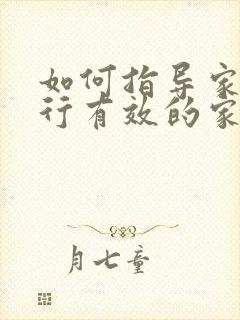 如何指导家
行有效的家
月七童